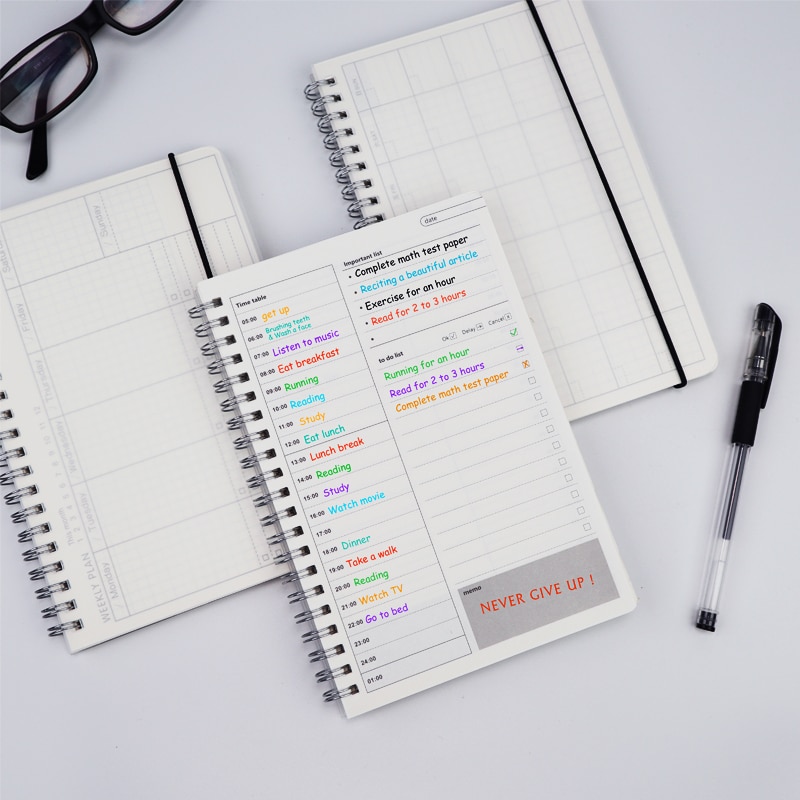 date
Time table
05:00 get up
06:00 Brushing teeth
& Wash a face
07:00 Listen to music
08:00 Eat breakfast
09:00 Running
10:00 Reading
11:00 Study
12:00 Eat lunch
13:00 Lunch break
14:00 Reading
15:00 Study
16:00 Watch movie
17:00
18:00 Dinner
19:00 Take a walk
20:00 Reading
21:00 Watch TV
22:00 Go to bed
23:00
24:00
01:00
Important list
• Complete math test paper
• Reciting a beautiful article
• Exercise for an hour
• Read for 2 to 3 hours
•
Ok Delay Cancel
to do list
Running for an hour
Read for 2 to 3 hours
Complete math test paper
memo
NEVER GIVE UP !
WEEKLY PLAN
Monday
Tuesday
Thursday
Friday
Sunday